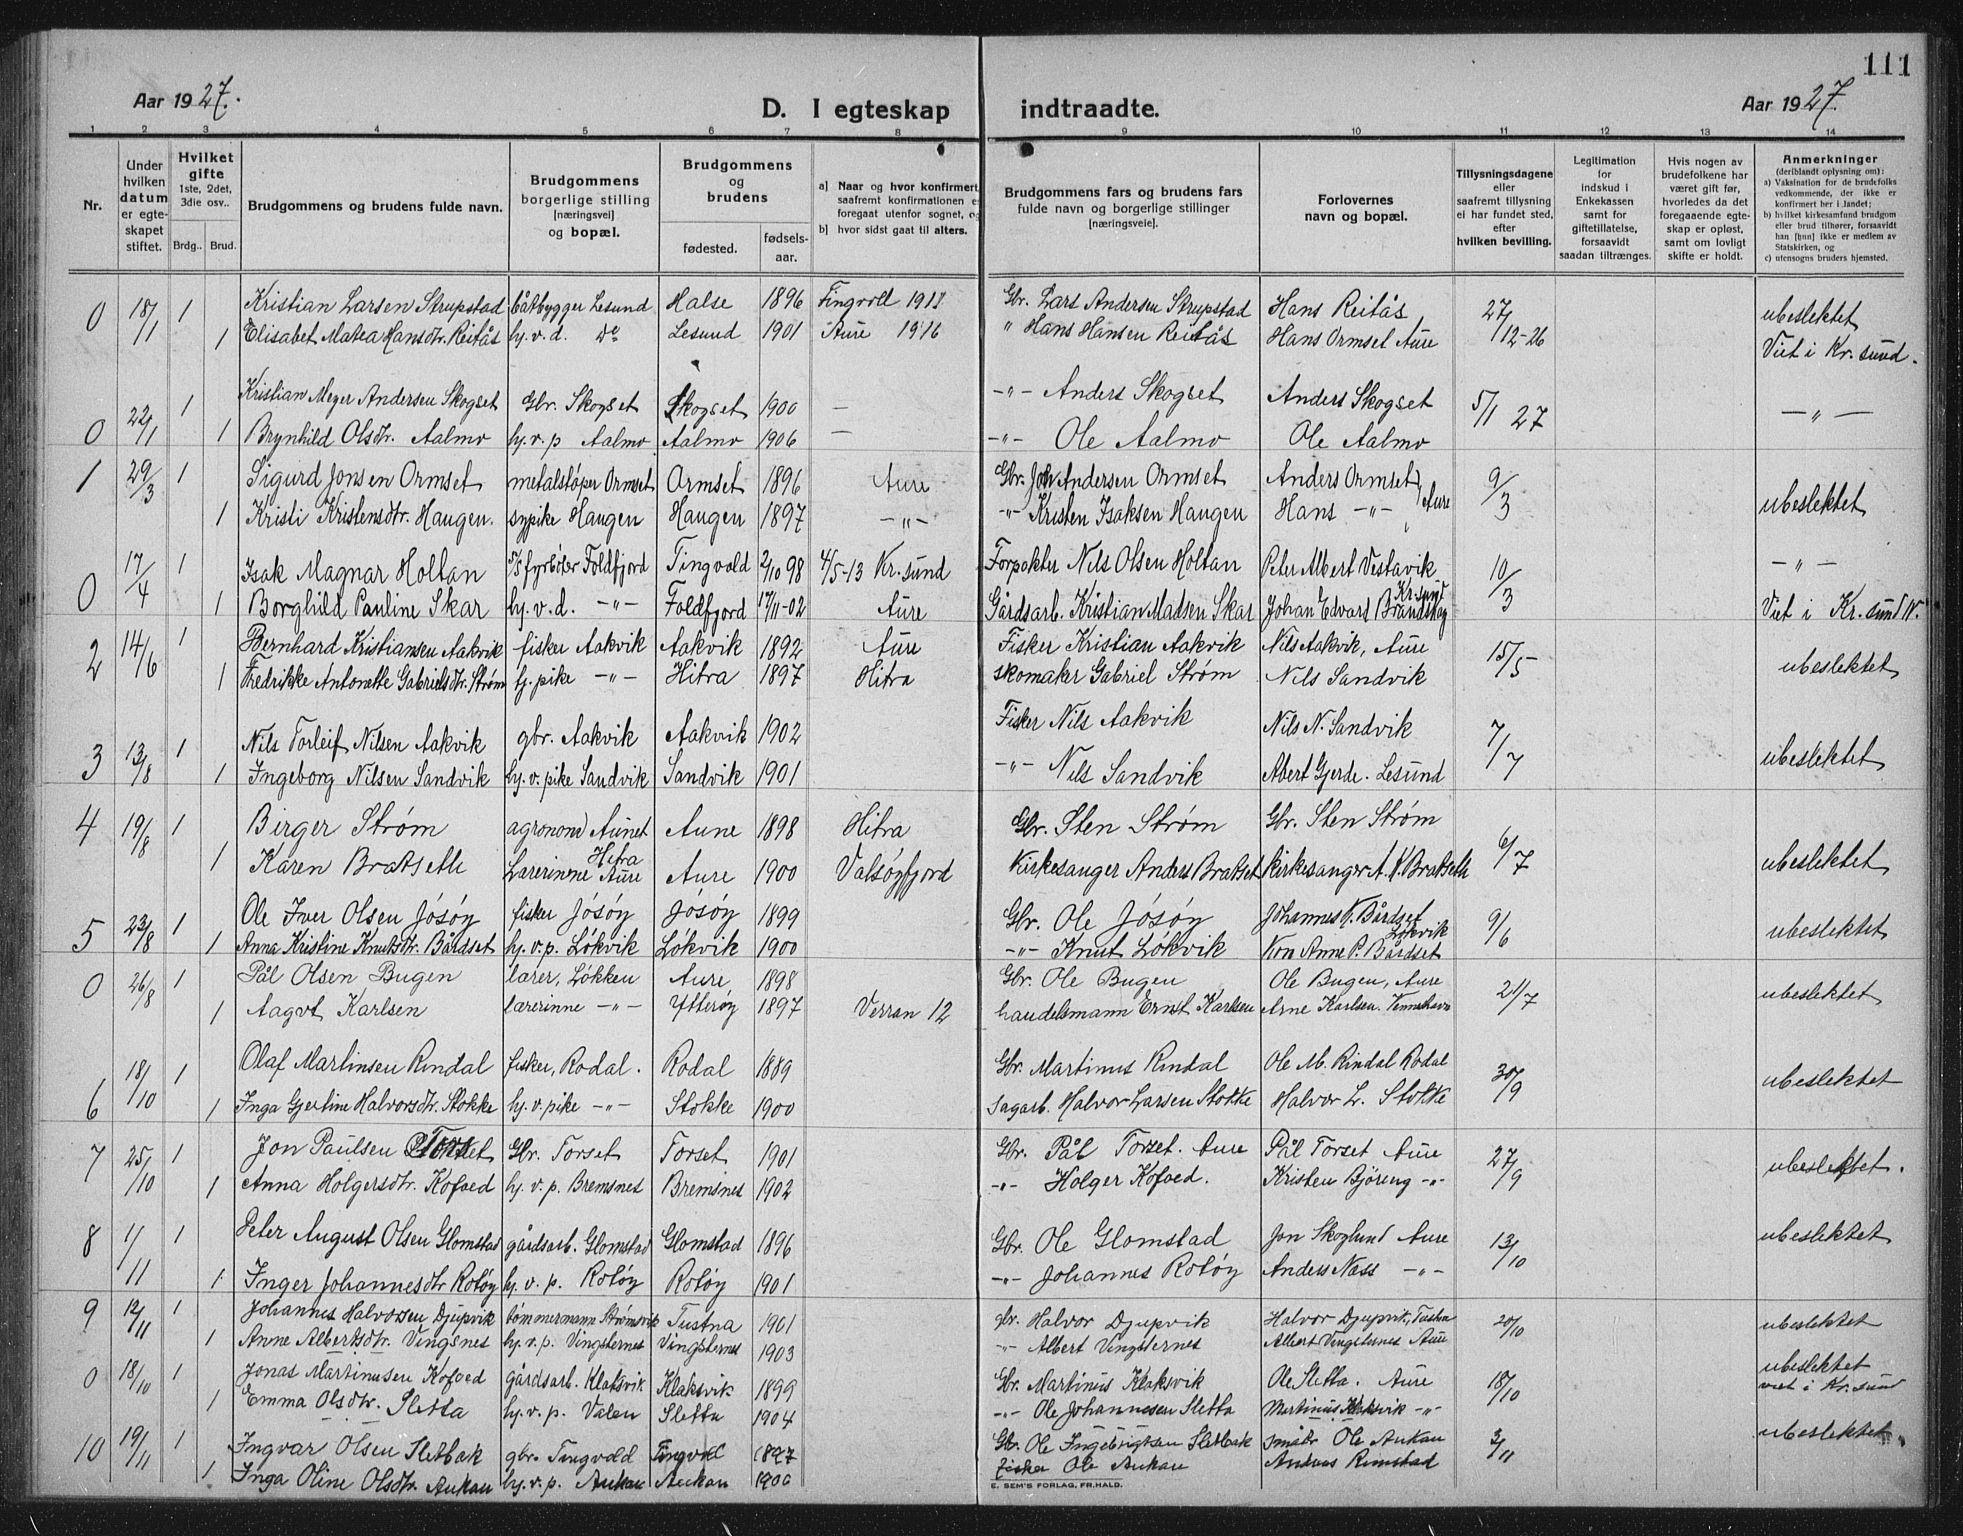 111
Aar 1927. D. I egteskap indtraadte. Aar 1927.
1 2 3 4 5 6 7 8 9 10 11 12 13 14
Nr.
Under hvilken datum er egteskapet stiftet.
Hvilket gifte 1ste, 2det, 3die osv.. Brdg.. Brud.
Brudgommens og brudens fulde navn.
Brudgommens borgerlige stilling [næringsvei] og bopæl.
Brudgommens og brudens fødested. fødselsaar.
a) Naar og hvor konfirmert, saafremt konfirmationen er foregaat utenfor sognet, og
b) hvor sidst gaat til alters.
Brudgommens fars og brudens fars fulde navn og borgerlige stillinger [næringsveie].
Forlovernes navn og bopæl.
Tillysningsdagene eller saafremt tillysning ei har fundet sted, efter hvilken bevilling.
Legitimation for indskud i Enkekassen samt for giftetillatelse, forsaavidt saadan tiltrænges.
Hvis nogen av brudefolkene har været gift før, hvorledes da det foregaaende egteskap er opløst, samt om lovligt skifte er holdt.
Anmerkninger (deriblandt oplysning om):
a) Vaksination for de brudefolks vedkommende, der ikke er konfirmert her i landet;
b) hvilket kirkesamfund brudgom eller brud tilhører, forsaavidt han [hun] ikke er medlem av Statskirken, og
c) utensogns bruders hjemsted.
0 18/1 1 Kristian Larsen Strupstad båtbygger Lesund Halse 1896 Tingvoll 1911 Gbr. Lars Andersen Strupstad Hans Reitås 27/12-26 ubeslektet
1 Elisabet Matea Hansdtr. Reitås hj.v.d. Do Lesund 1901 Aure 1916 " Hans Hansen Reitås Hans Ormset Aure Viet i Kr.sund.
0 22/1 1 Kristian Meyer Andersen Skogset Gbr. Skogset Skogset 1900 — -"- Anders Skogset Anders Skogset 5/1 27 —"—
1 Brynhild Olsdtr. Aalmo hj.v.p Aalmo Aalmo 1906 — -"- Ole Aalmo Ole Aalmo
1 29/3 1 Sigurd Jonsen Ormset metalstøper Ormset Ormset 1896 Aure Gbr. Joh Andersen Ormset Anders Ormset 9/3 ubeslektet
1 Kristi Kristensdtr. Haugen. sypike Haugen Haugen 1897 -"- -"- Kristen Isaksen Haugen Hans -"- Aure
0 17/4 1 Isak Magnar Holtan D/S fyrbøter Foldfjord Tingvold 2/10 98 4/5-13 Kr.sund Forpakter Nils Olsen Holtan Peter Albert Vestavik Kr.sund 10/3 —"—
1 Borghild Pauline Skar hj.v.d. -"- Foldfjord 17/11-02 Aure Gårdsarb. Kristian Madsen Skar Johan Edvard Brandskog Viet i Kr.sund N.
2 14/6 1 Bernhard Kristiansen Aakvik fisker Aakvik Aakvik 1892 Aure Fisker Kristian Aakvik Nils Aakvik, Aure 15/5 ubeslektet
1 Fredrikke Antonette Gabrielsdtr. Strøm tj.pike -"- Hitra 1897 Hitra skomaker Gabriel Strøm Nils Sandvik
3 13/8 1 Nils Torleif Nilsen Aakvik gbr. Aakvik Aakvik 1902 Fisker Nils Aakvik Nils N. Sandvik 7/7 ubeslektet
1 Ingeborg Nilsen Sandvik hj.v.pike Sandvik Sandvik 1901 -"- Nils Sandvik Albert Gjerde. Lesund
4 19/8 1 Birger Strøm agronom Aunet Hitra Aune 1898 Hitra Gbr. Sten Strøm Gbr. Sten Strøm 6/7 ubeslektet
1 Karen Bratseth Lærerinne Aure Aure 1900 Valsøyfjord Kirkesanger Anders Bratset kirkesanger A. K. Bratseth
5 23/8 1 Ole Iver Olsen Jøsøy fisker Jøsøy Jøsøy 1899 Gbr. Ole Jøsøy Johannes K. Bårdset Løkvik 9/6 ubeslektet
1 Anna Kristine Knutsdtr. Bårdset hj.v.p. Løkvik Løkvik 1900 -"- Knut Løkvik Kon Anne P. Bårdset
0 26/8 1 Pål Olsen Bugen lærer, Løkken Aure, 1898 Gbr. Ole Bugen Ole Bugen, Aure 21/7 ubeslektet
1 Aagot Karlsen lærerinne -"- Ytterøy 1897 Verran 12 handelsmann Ernst Karlsen Arne Karlsen.
6 18/10 1 Olaf Martinsen Rindal fisker, Rodal. Rodal 1889 Gbr. Martinus Rindal Ole M. Rindal Rodal 30/9 ubeslektet
1 Inga Gjertine Halvorsdtr. Stokke hj.v.pike -"- Stokke 1900 sagarb. Halvor Larsen Stokke Halvor L. Stokke
7 25/10 1 Jon Paulsen Torset Gbr. Torset Torset 1901 Gbr. Pål Torset. Aure Pål Torset Aure 27/9 ubeslektet.
1 Anna Holgersdtr. Kofoed hj.v.p. Bremsnes Bremsnes 1902 -"- Holger Kofoed. Kristen Bjøreng -"-
8 1/11 1 Peter August Olsen Glomstad gårdsarb. Glomstad Glomstad 1896 Gbr. Ole Glomstad Jon Skoglund Aure 13/10 ubeslektet
1 Inger Johannesdtr Rotøy hj.v.p. Rotøy Rotøy 1901 -"- Johannes Rotøy Anders Næss -"-
9 12/11 1 Johannes Halvorsen Djupvik tømmermann Strømsvik Tustna 1901 gbr. Halvor Djupvik Halvor Djupvik, Tustna 20/10 ubeslektet
1 Anne Albertsdtr. Vingsnes hj.v.p. Vingsternes Vingsternes 1903 -"- Albert Vingsternes Albert Vingsternes Aure
0 18/10 1 Jonas Martinusen Kofoed gårdsarb. Klaksvik Klaksvik 1899 Gbr. Martinus Klaksvik Ole Sletta. Aure 18/10 ubeslektet viet i Kr.sund
1 Emma Olsdtr. Sletta hj.v.p. Valen Sletta 1904 -"- Ole Johannesen Sletta Martinus Klaksvik -"-
10 19/11 1 Ingvar Olsen Sletbak gbr. Tingvold Tingvold 1897 Gbr. Ole Ingebrigtsen Sletbak småbr Ole Aukan 3/11 ubeslektet
1 Inga Oline Olsdtr. Aukan hj.v.p. Aukan Aukan 1900 fisker Ole Aukan Anders Rimstad
E. SEM'S FORLAG, FR.HALD.